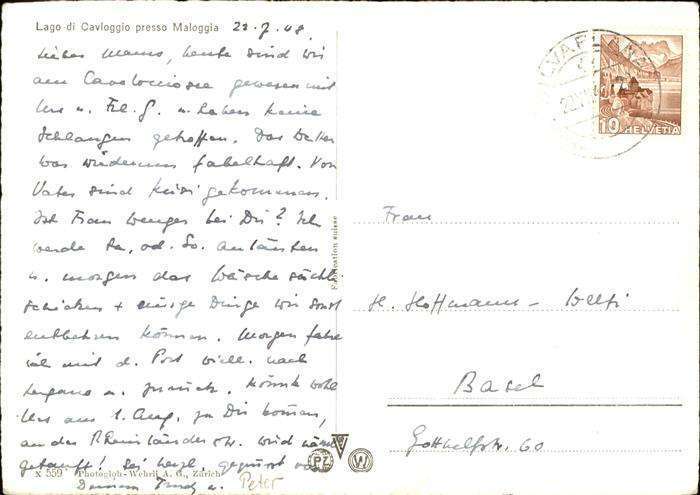 Lago di Cavloggio presso Maloggia 22.7.48.
Liebe Mama, heute sind wir
am Cavolocciosee gewesen mit
Urs u. Frl. G. u. haben keine
Schlangen getroffen. Das Wetter
war wiederum fabelhaft. Von
Vater sind gekommen.
Ist Frau Wenger bei Dir? Ich
werde Sa. od. So. anläuten
u. morgen das Wäsche
schicken + einige Dinge wir sonst
entbehren können. Morgen fahre
ich mit d. Post viell. nach
Lugano u. zurück. Könnte wohl
Urs am 1. Aug. zu Dir kommen,
an der Rheinländerstr. wird
getauft! Sei herzl. gegrüsst von
Deinem u. Peter
X 559 Photogloh-Wehrli A. G., Zürich
PZ W
10 HELVETIA
Frau
H. Hoffmann-Welti
Basel
Gotthelfstr. 60